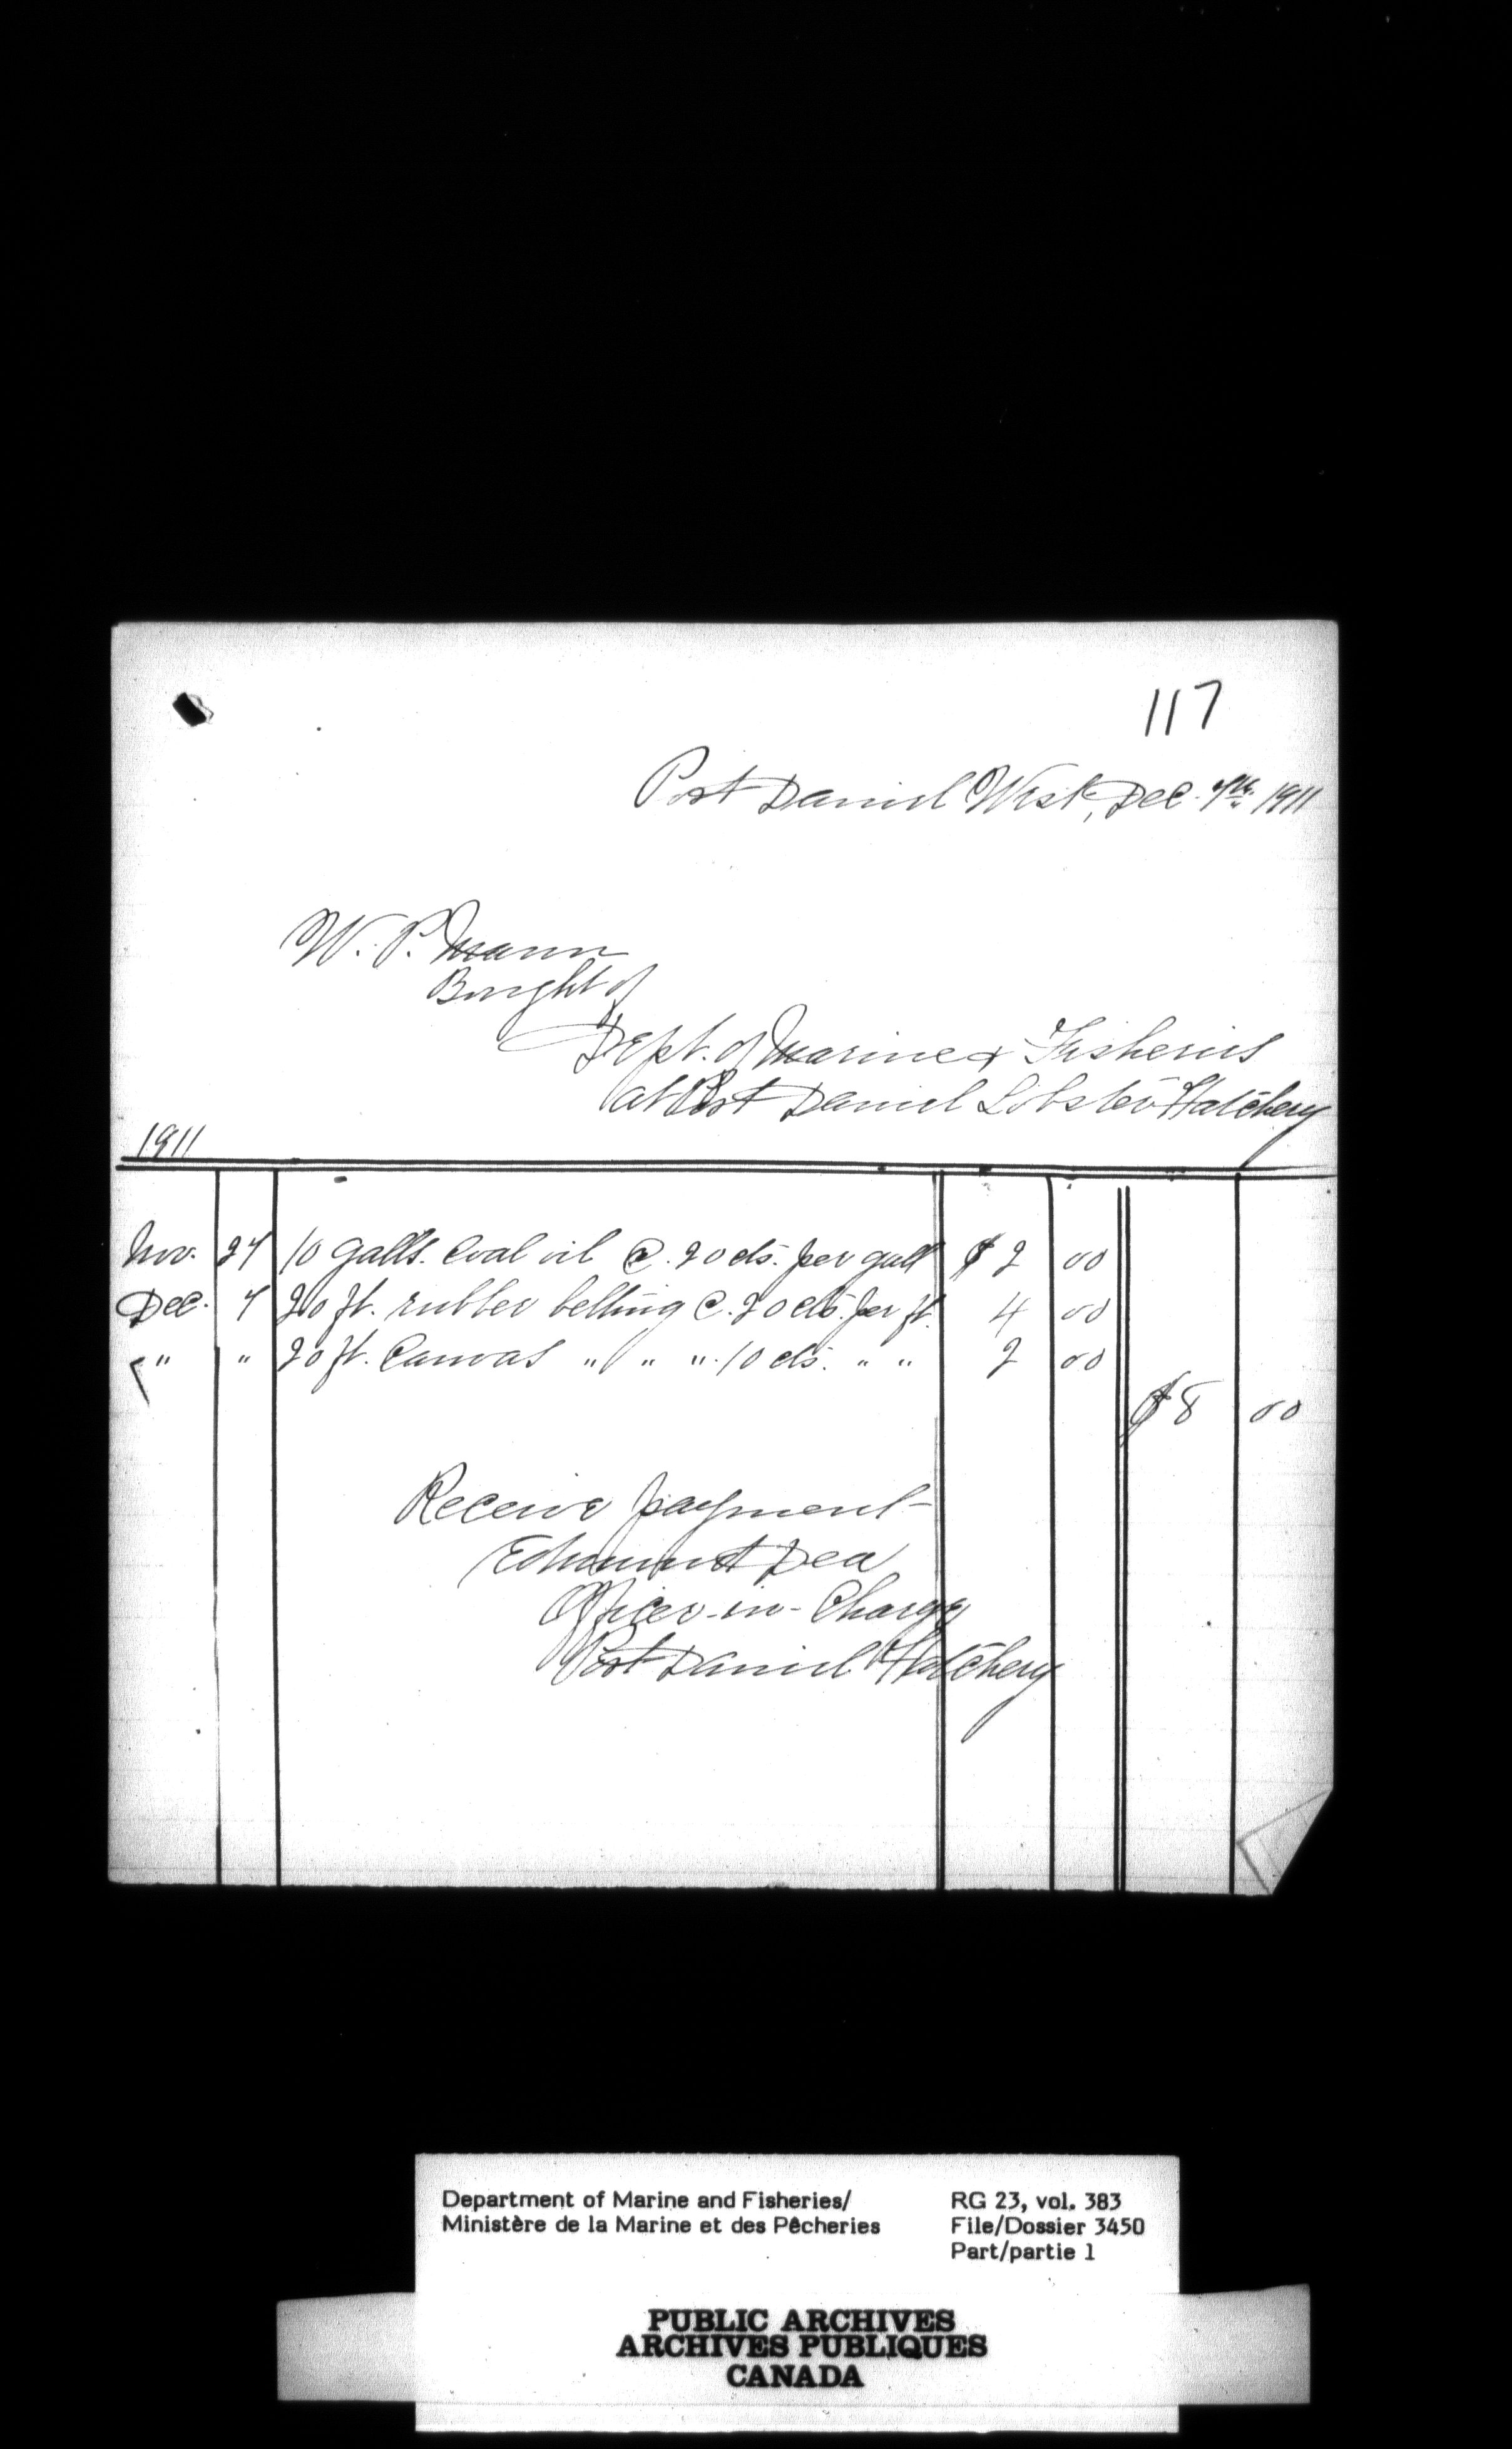 117
Port Daniel West, Dec. 7th 1911
W. P. Mann
Bought of
Dept. of Marine & Fisheries
at Port Daniel Lobster Hatchery
1911
Nov. 27 10 galls. Coal oil @. 20 cts. per gall $ 2 00
Dec. 7 20 ft. rubber belting @. 20 cts. per ft. 4 00
" " 20 ft. Canvas " " " 10 cts. " " 2 00
$ 8 00
Receive payment
Edmund Dea
Officer-in-Charge
Port Daniel Hatchery
Department of Marine and Fisheries/ RG 23, vol. 383
Ministère de la Marine et des Pêcheries File/Dossier 3450
Part/partie 1
PUBLIC ARCHIVES
ARCHIVES PUBLIQUES
CANADA